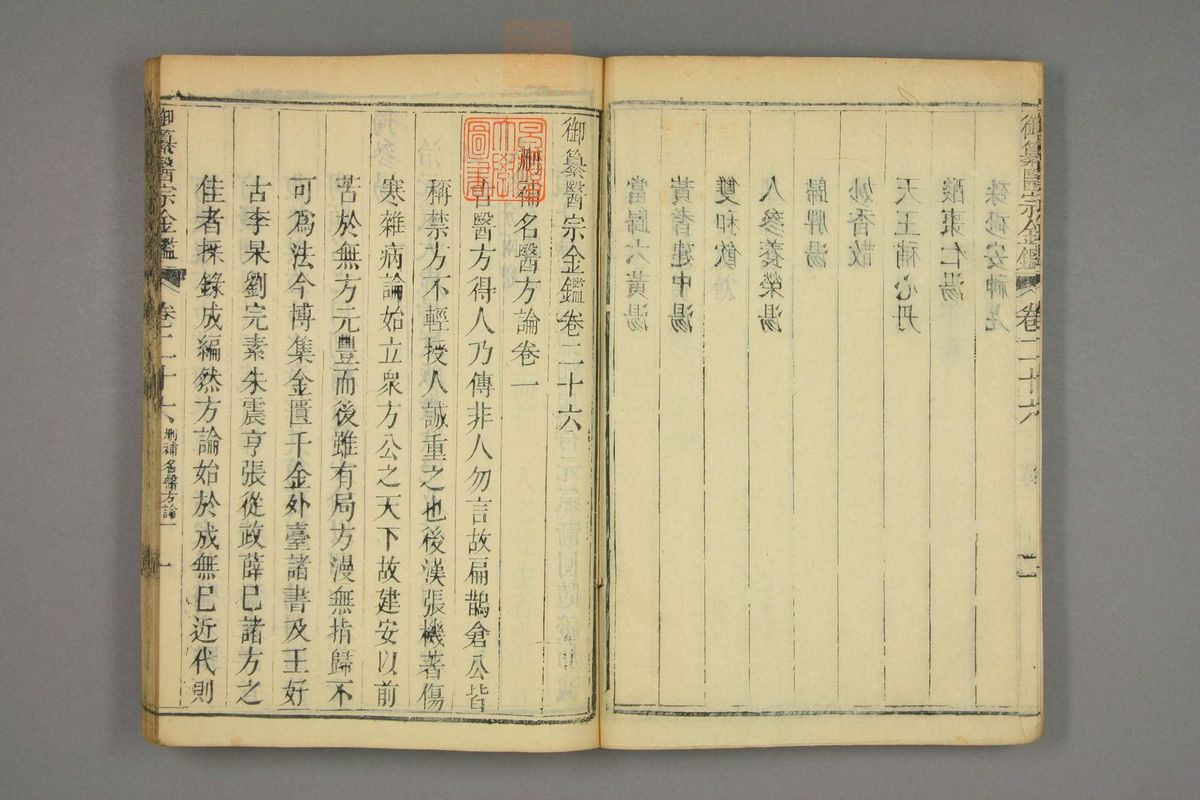 御纂醫宗金鑑 卷二十六
硃砂安神丸
酸棗仁湯
天王補心丹
妙香散
歸脾湯
人參養榮湯
雙和飲
黃耆建中湯
當歸六黃湯
御纂醫宗金鑑卷二十六
刪補名醫方論卷一
昔醫方得人乃傳非人勿言故扁鵲倉公皆
稱禁方不輕授人誠重之也後漢張機著傷
寒雜病論始立衆方公之天下故建安以前
苦於無方元豐而後雖有局方漫無指歸不
可爲法今博集金匱千金外臺諸書及王好
古李杲劉完素朱震亨張從政薛已諸方之
佳者採錄成編然方論始於成無已近代則
御纂醫宗金鑑 卷二十六 刪補名醫方論一 一